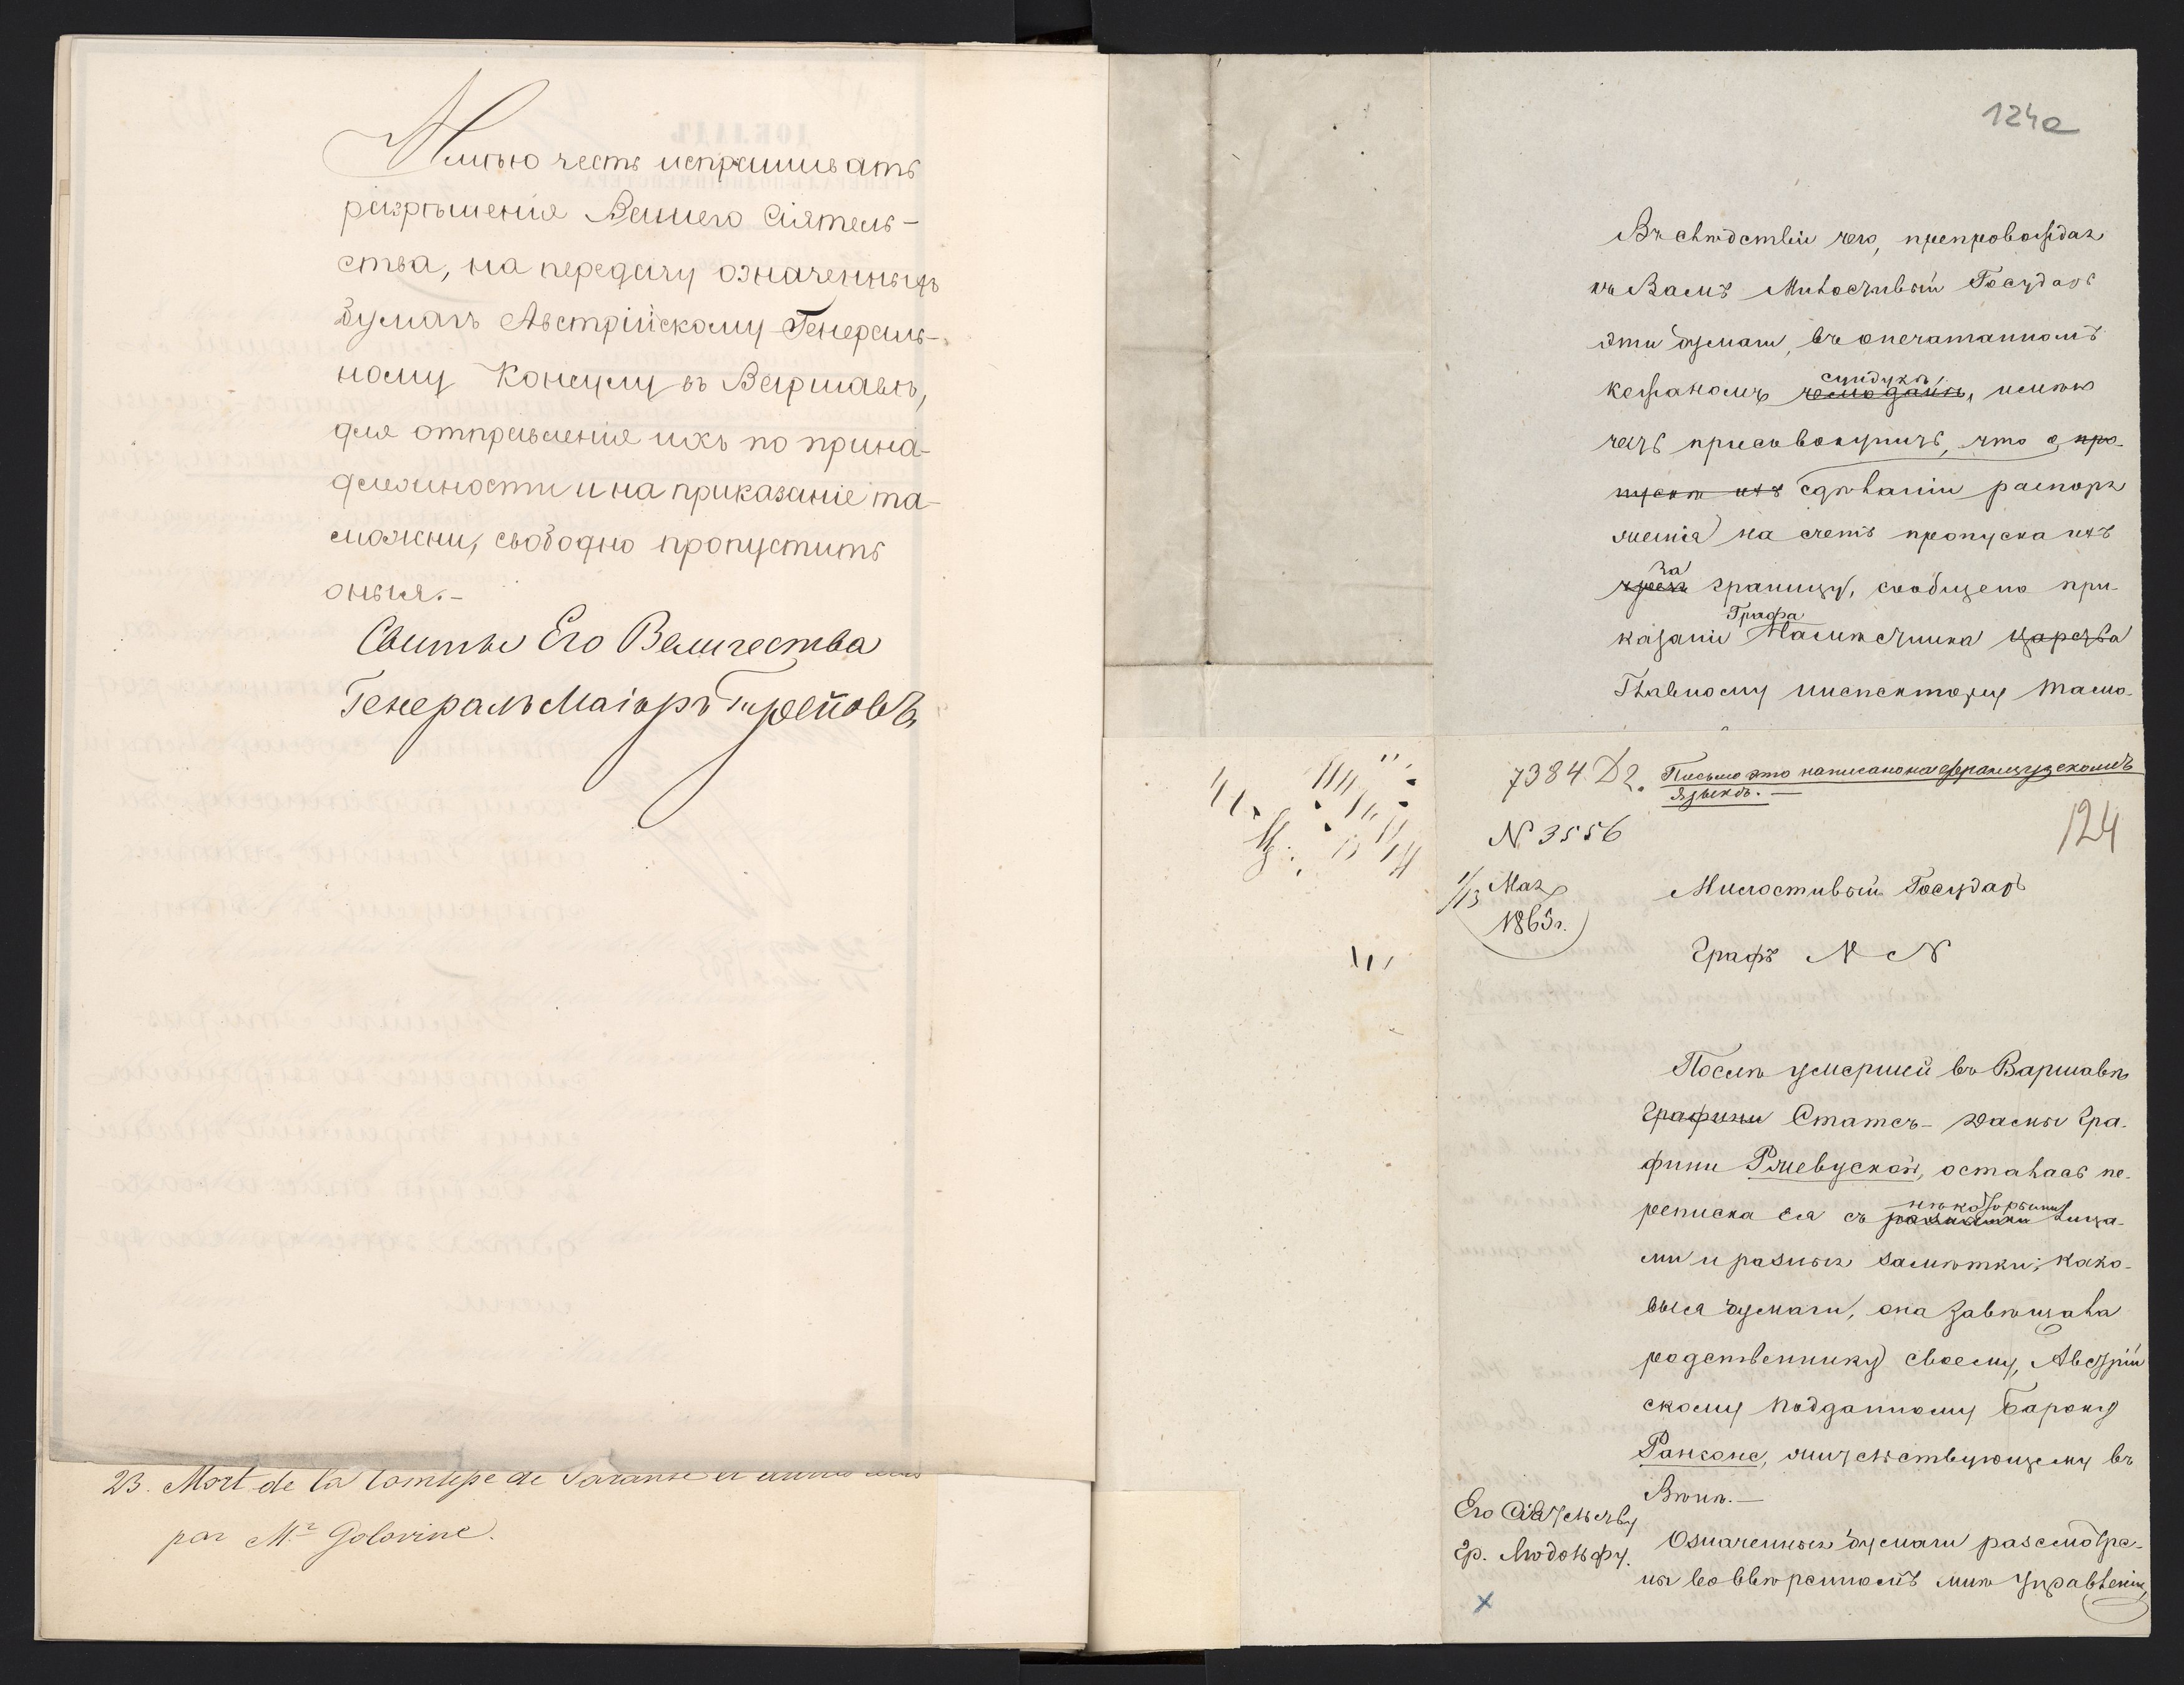 Имѣю честь испрашивать
разрѣшенія Вашего Сіятель-
ства, на передачу означенныхъ
бумагъ Австрійскому Генераль-
ному Консулу въ Варшавѣ,
для отправленія ихъ по прина-
длежности и на приказаніе та-
можни, свободно пропустить
оныя.-
Свиты Его Величества
Генералъ Маіоръ Треповъ
23. Mort de la Comtesse de
par Mr. Golovine.
124a
Въ слѣдствіи чего, препровождая
къ Вамъ Милостивый Государь
эти бумаги, въ опечатанномъ
сундукѣ,
кожаномъ чемоданѣ, имѣю
честь присовокупить, что о про-
пускѣ ихъ сдѣланіи распоря
женія на счетъ пропуска ихъ
за
чрезъ границу, сообщено при-
Графа
казаніе Намѣстника Царства
Главному инспектору тамо-
7384 D2. Письмо это написано на французскомъ
языкѣ. —
N 3556
124
1/13 Мая
1865г.
Милостивый Государь
Графъ N N
Послѣ умершей въ Варшавѣ
Графини Статсъ-дамы Гра-
фини Ржевуской, осталась пе-
нѣкоторыми
реписка ея съ разными лица-
ми и разныя замѣтки; како-
выя бумаги, она завѣщала
родственнику своему, Австрій
скому подданному Барону
Рансоне, жительствующему въ
Вѣнѣ.—
Его Сіятельству
гр. Людольфу.
Означенныя бумаги разсмотре-
ны во ввѣренномъ мнѣ Управленіи,
x